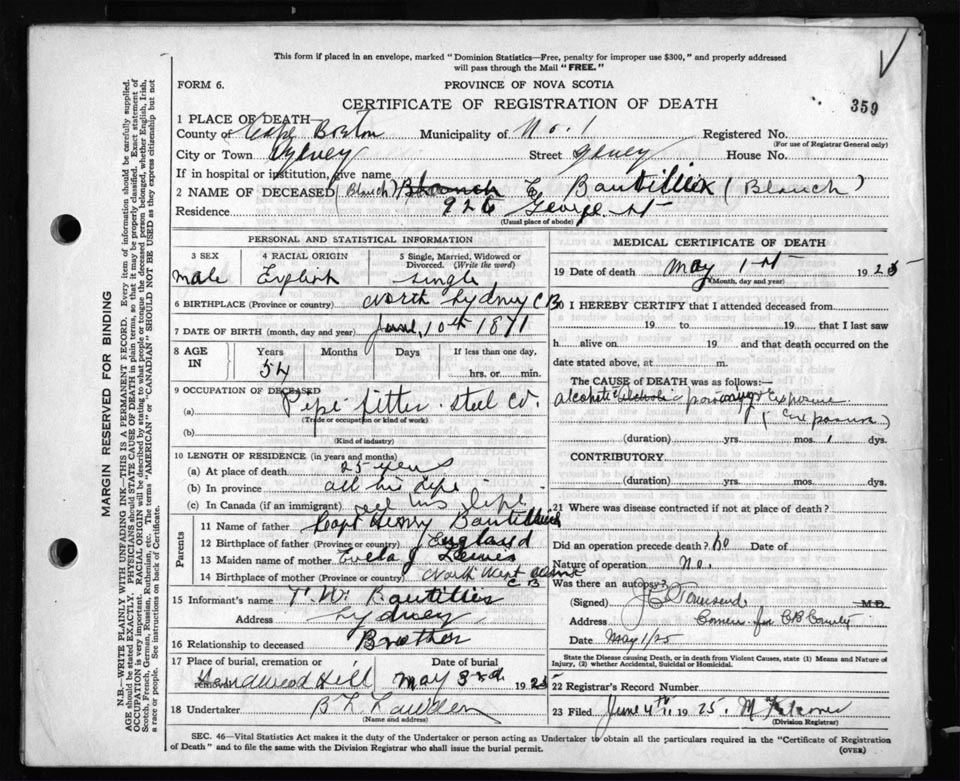 This form if placed in an envelope, marked "Dominion Statistics—Free, penalty for improper use $300," and properly addressed
will pass through the Mail "FREE."
FORM 6.
PROVINCE OF NOVA SCOTIA
CERTIFICATE OF REGISTRATION OF DEATH
359
1 PLACE OF DEATH—
County of Cape Breton Municipality of No. 1 Registered No.
(For use of Registrar General only)
City or Town Sydney Street Sydney House No.
If in hospital or institution, give name
2 NAME OF DECEASED (Blanch) Blanch E. Boutillier (Blanch)
Residence 926 George St
(Usual place of abode)
PERSONAL AND STATISTICAL INFORMATION
3 SEX
male
4 RACIAL ORIGIN
English
5 Single, Married, Widowed or Divorced. (Write the word)
single
6 BIRTHPLACE (Province or country) North Sydney C B
7 DATE OF BIRTH (month, day and year) June 10th 1871
8 AGE IN
Years Months Days If less than one day,
54 hrs. or min.
9 OCCUPATION OF DECEASED
(a) Pipe fitter Steel Co.
(Trade or occupation or kind of work)
(b)
(Kind of industry)
10 LENGTH OF RESIDENCE (in years and months)
(a) At place of death 25 years
(b) In province all his life
(c) In Canada (if an immigrant) all his life
Parents
11 Name of father Capt Henry Boutillier
12 Birthplace of father (Province or country) England
13 Maiden name of mother
14 Birthplace of mother (Province or country) North West C B
15 Informant's name T. W. Boutillier
Address Sydney
16 Relationship to deceased Brother
17 Place of burial, cremation or removal Date of burial
Hardwood Hill May 3rd 1925
18 Undertaker
(Name and address)
MEDICAL CERTIFICATE OF DEATH
19 Date of death May 1st 1925
(Month, day and year)
20 I HEREBY CERTIFY that I attended deceased from
19 to 19 that I last saw
h alive on 19 and that death occurred on
date stated above, at m.
The CAUSE OF DEATH was as follows:—
Alcoholic poisoning & Exposure
(Exposure)
(duration) yrs. mos. 1 dys.
CONTRIBUTORY
(duration) yrs. mos. dys.
21 Where was disease contracted if not at place of death?
Did an operation precede death? no Date of
Nature of operation No.
Was there an autopsy?
(Signed) Townsend M.D.
Address Coroner for C B County
Date May 1/25
State the Disease causing Death, or in death from Violent Causes, state (1) Means and Nature of Injury, (2) whether Accidental, Suicidal or Homicidal.
22 Registrar's Record Number
23 Filed June 4th 1925.
(Division Registrar)
SEC. 46—Vital Statistics Act makes it the duty of the Undertaker or person acting as Undertaker to obtain all the particulars required in the "Certificate of Registration
of Death" and to file the same with the Division Registrar who shall issue the burial permit.
(OVER)
MARGIN RESERVED FOR BINDING
N.B.—WRITE PLAINLY WITH UNFADING INK—THIS IS A PERMANENT RECORD. Every item of information should be carefully supplied.
AGE should be stated EXACTLY. PHYSICIANS should STATE CAUSE OF DEATH in plain terms, so that it may be properly classified. Exact statement of
OCCUPATION is very important. RACIAL ORIGIN will be described by stating to what people or tongue the deceased person belonged, whether English, Irish,
Scotch, French, German, Russian, Ruthenian, etc. The terms "AMERICAN" or "CANADIAN" SHOULD NOT BE USED as they express citizenship but not
a race or people. See instructions on back of Certificate.